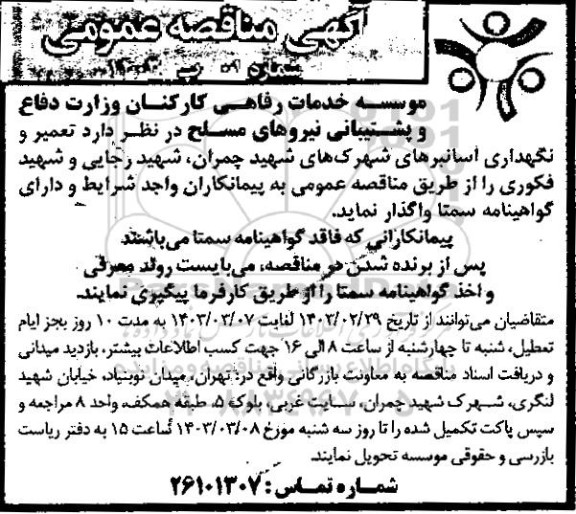 آگهی مناقصه عمومی
شماره ۰۹ ب ۱۴۰۳
موسسه خدمات رفاهی کارکنان وزارت دفاع
و پشتیبانی نیروهای مسلح در نظر دارد تعمیر و
نگهداری آسانبرهای شهرک‌های شهید چمران، شهید رجایی و شهید
فکوری را از طریق مناقصه عمومی به پیمانکاران واجد شرایط و دارای
گواهینامه سمتا واگذار نماید.
پیمانکارانی که فاقد گواهینامه سمتا می‌باشند
پس از برنده شدن در مناقصه، می‌بایست روند معرفی
و اخذ گواهینامه سمتا را از طریق کارفرما پیگیری نمایند.
متقاضیان می‌توانند از تاریخ ۱۴۰۳/۰۲/۲۹ لغایت ۱۴۰۳/۰۳/۰۷ به مدت ۱۰ روز بجز ایام
تعطیل، شنبه تا چهارشنبه از ساعت ۸ الی ۱۶ جهت کسب اطلاعات بیشتر، بازدید میدانی
و دریافت اسناد مناقصه به معاونت بازرگانی واقع در: تهران، میدان نوبنیاد، خیابان شهید
لنگری، شهرک شهید چمران، سایت غربی، بلوک ۵، طبقه همکف، واحد ۸ مراجعه و
سپس پاکت تکمیل شده را تا روز سه شنبه مورخ ۱۴۰۳/۰۳/۰۸ ساعت ۱۵ به دفتر ریاست
بازرسی و حقوقی موسسه تحویل نمایند.
شماره تماس: ۲۶۱۰۱۳۰۷